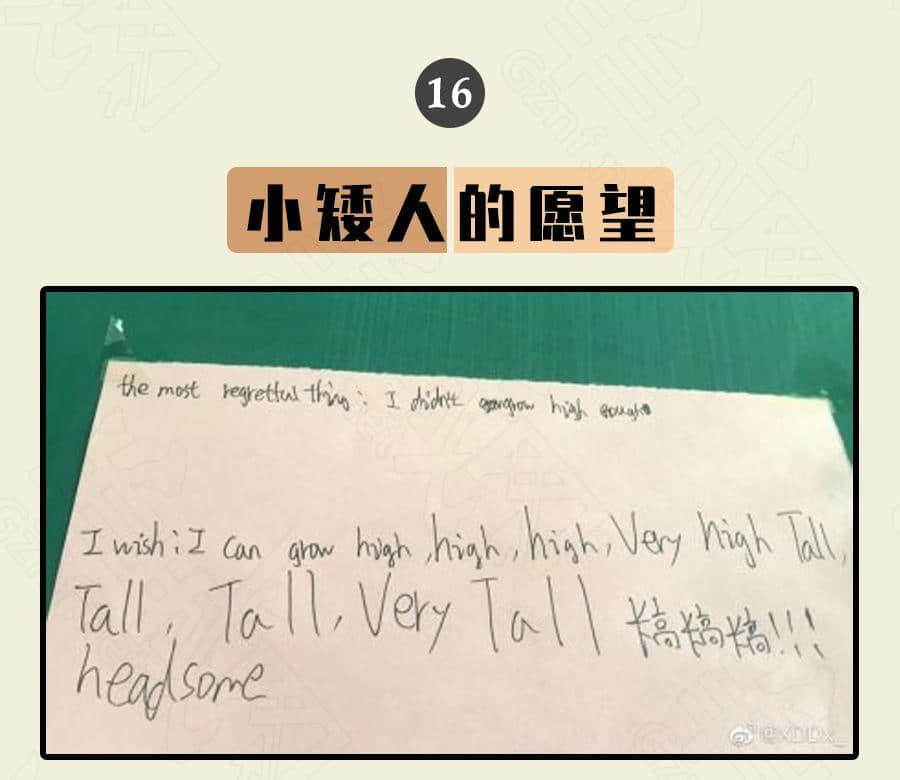 16
小矮人的愿望
the most regretful thing: I didn't grow high
I wish: I can grow high, high, high, Very high Tall,
Tall, Tall, Very Tall !!!
headsome
@XDDX_